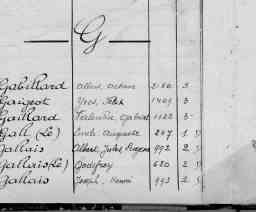 G
Gabillard Albert, Octave 2180 3
Gaigeot Yves, Félix 1409 3
Gaillard Valentin, Gabriel 1122 3
Gall (Le) Emile, Auguste 247 1
Gallais Albert, Jules, Eugène 992 2
Gallais (Le) Godefroy 680 2
Gallais Joseph, Henri 993 2